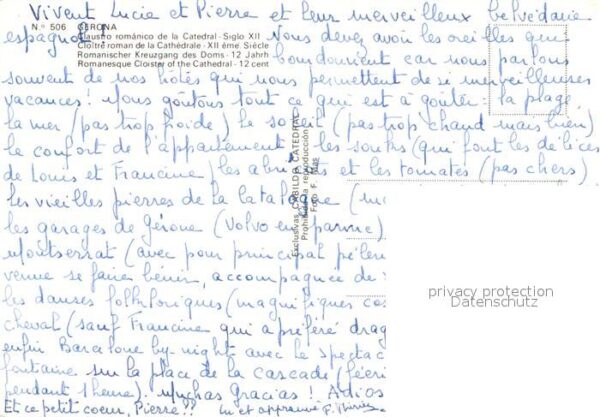 Vivent Lucie et Pierre et leur merveilleux belvédère
espagnol!
Nº 506 GERONA
Claustro románico de la Catedral - Siglo XII
Cloître roman de la Cathédrale - XII éme. Siècle
Romanischer Kreuzgang des Doms - 12 Jahrh
Romanesque Cloister of the Cathedral - 12 cent
Vous devez avoir les oreilles qui
bourdonnent car nous parlons
souvent de nos hôtes qui nous permettent de si merveilleuses
vacances! Nous goûtons tout ce qui est à goûter: la plage,
la mer (pas trop froide) le soleil (pas trop chaud mais bien)
le confort de l'appartement, les (qui font les délices
de Louis et Francine, les abricots et les tomates (pas chers)
les vieilles pierres de la
les garages de Gérone (Volvo en panne)
Montserrat (avec pour principal
venue se faire bénir, accompagnée de
les danses folkloriques (magnifiques cos
cheval (sauf Francine qui a préféré drag
enfin Barcelone by-night avec le spectac
fontaine sur la place de la cascade (féeri
pendant 1 heure). Muchas Gracias! Adios
Et ce petit coeur, Pierre?? Lu et approuvé F.
Exclusivas CABILDO CATEDRAL
Prohibida la reproducción
Foto F. Mas
privacy protection
Datenschutz